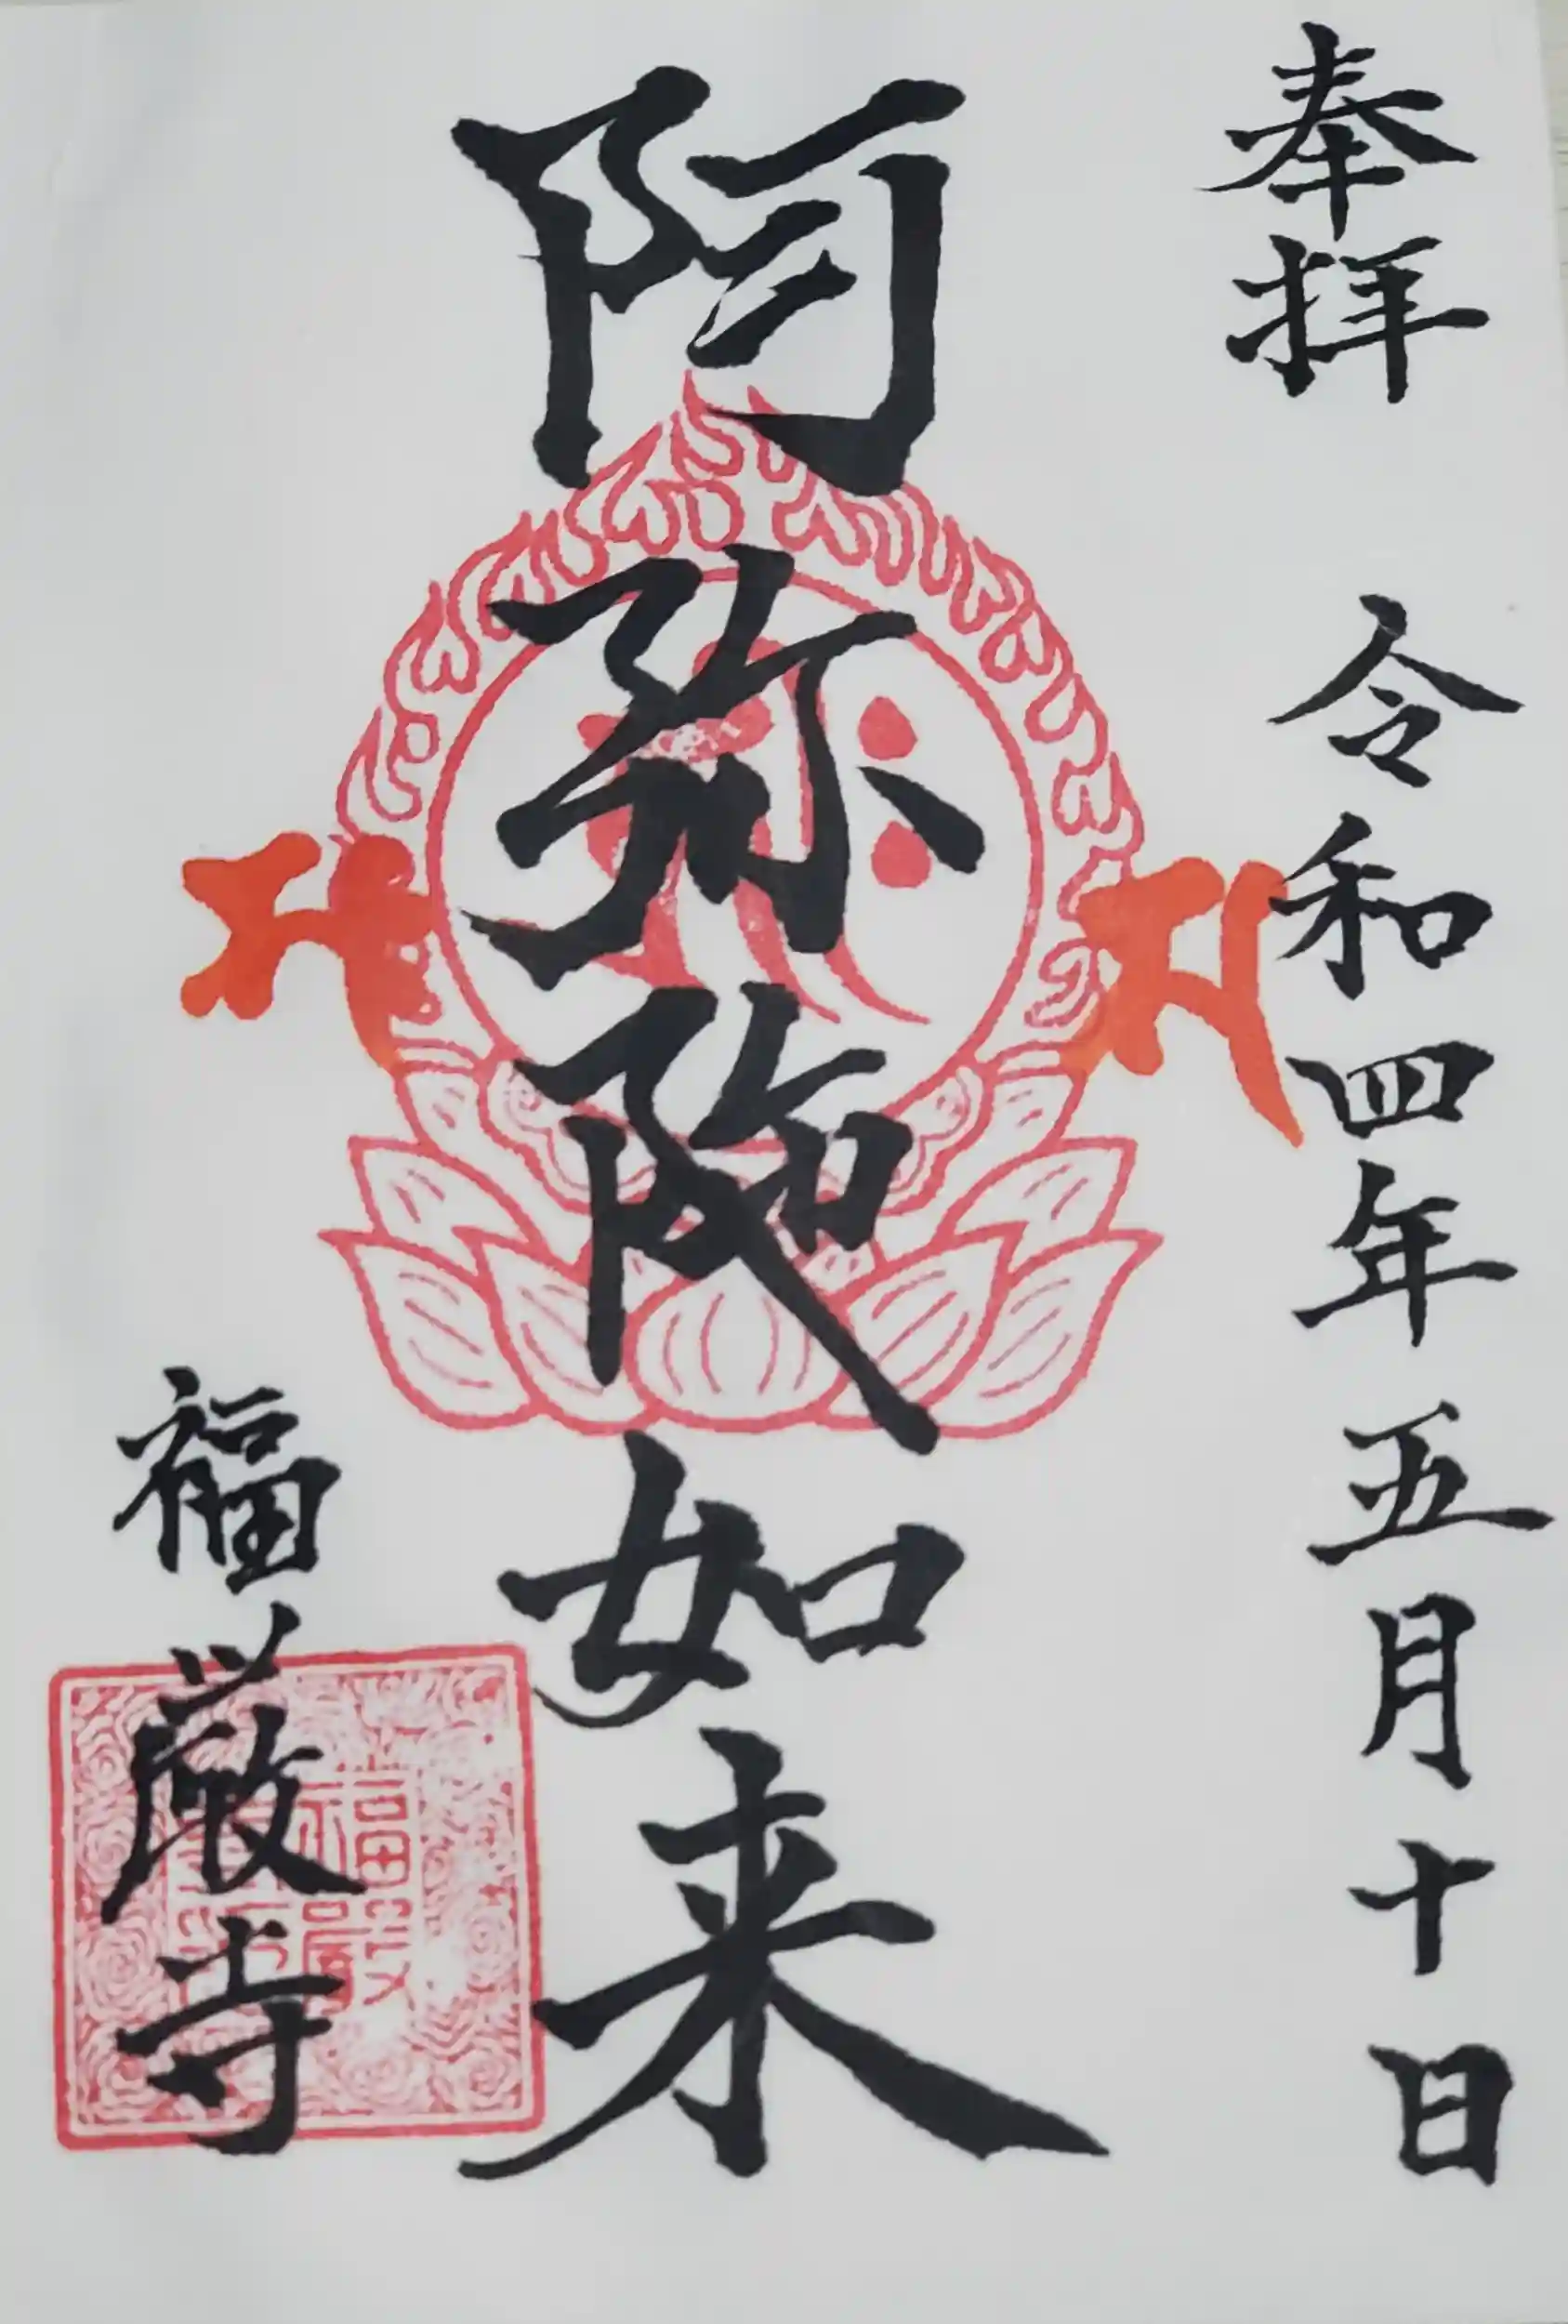 奉拝 令和四年五月十日
阿弥陀如来
福厳寺
福嚴